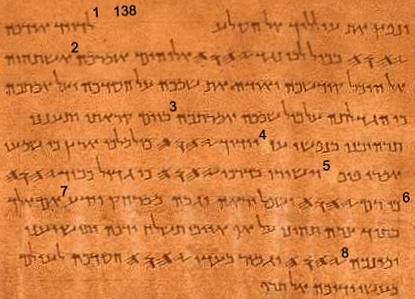 ונפץ את עולליך אל הסלע 138 1 לדויד אודכה
𐤉𐤄𐤅𐤄 בכול לבי נגד 𐤉𐤄𐤅𐤄 אלוהים אזמרכה 2 אשתחוה
אל היכל קודשכה ואודה את שמכה על חסדכה ועל אמתכה
כי הגדלתה על כול שמכה אמרתכה 3 ביום קראתי ותענני
תרהיבני בנפשי עוז 4 יודוך 𐤉𐤄𐤅𐤄 כול מלכי ארץ כי שמעו
אמרי פיכה 5 וישירו בדרכי 𐤉𐤄𐤅𐤄 כי גדול כבוד 𐤉𐤄𐤅𐤄
6 כי רם 𐤉𐤄𐤅𐤄 ושפל יראה וגבה ממרחק יידע 7 אם אלך
בתוך צרה תחיני על אף אויבי תשלח ידכה ותושיעני
ימינכה 8 𐤉𐤄𐤅𐤄 יגמור בעדי 𐤉𐤄𐤅𐤄 חסדכה לעולם
מעשי ידיכה אל תרף